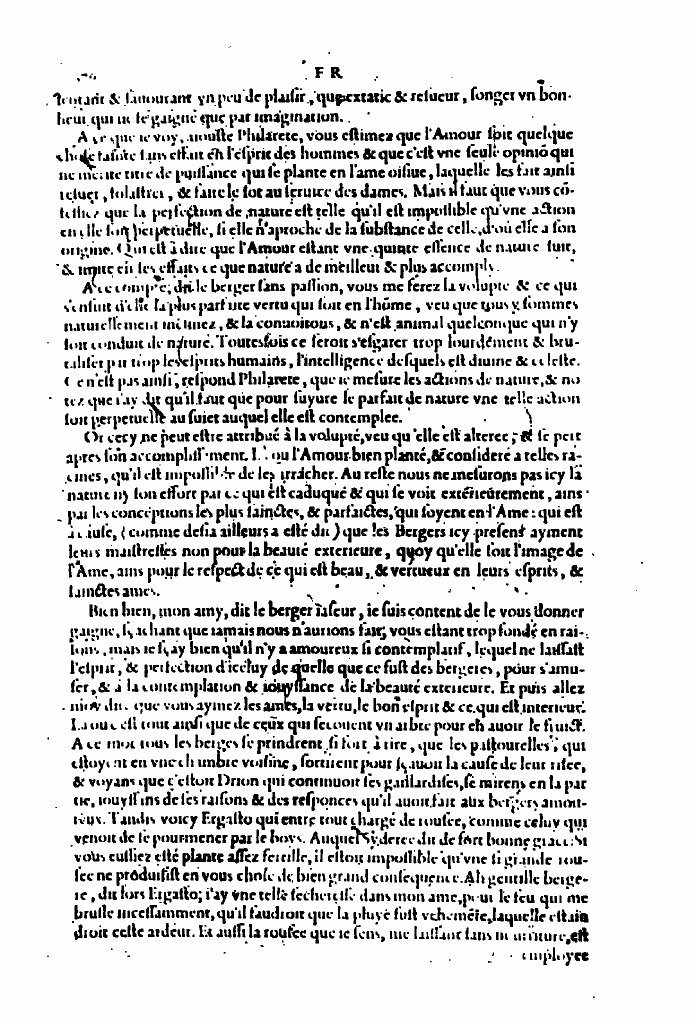 F R
& sauourant vn peu de plaisir, qu'extatic & resueur, songer vn bon-
heur qui ne se gaigne que par imagination.
A ce que ie voy, Philarete, vous estimez que l'Amour soit quelque
chose sans effait en l'esprit des hommes & que c'est vne seule opiniõ qui
ne merite titre de puissance qui se plante en l'ame oisiue, laquelle les fait ainsi
resuer, folastrer, & faire le sot au seruice des dames. Mais il faut que vous cõ-
fessiez que la perfection de nature est telle qu'il est impossible qu'vne action
en elle soit perpetuelle, si elle n'aproche de la substance de celle, d'où elle a son
origine. Qui est à dire que l'Amour estant vne quinte essence de nature suit,
& imite en ses effaits ce que nature a de meilleur & plus accomply.
A ce compte, dit le berger sans passion, vous me ferez la volupte & ce qui
s'ensuit d'elle la plus parfaite vertu qui soit en l'hõme, veu que tous y sommes
naturellement inclinez, & la conuoitons, & n'est animal quelconque qui n'y
soit conduit de nature. Toutesfois ce seroit s'esgarer trop lourdement & bru-
taliser par trop les esprits humains, l'intelligence desquels est diuine & celeste.
Ce n'est pas ainsi, respond Philarete, que ie mesure les actions de nature, & no
tez que i'ay dit qu'il faut que pour suyure le parfait de nature vne telle action
soit perpetuelle au suiet auquel elle est contemplee.
Or cecy ne peut estre attribué à la volupté, veu qu'elle est alteree, & se pert
apres son accomplissement. Là ou l'Amour bien planté, & consideré a telles ra-
cines, qu'il est impossible de les arracher. Au reste nous ne mesurons pas icy la
nature ny son effort par ce qui est caduque & qui se voit exterieurement, ains
par les conceptions les plus sainctes, & parfaictes, qui soyent en l'Ame: qui est
à cause, (comme desia ailleurs a esté dit) que les Bergers icy presens ayment
leurs maistresses non pour la beauté exterieure, quoy qu'elle soit l'image de
l'Ame, ains pour le respect de ce qui est beau, & vertueux en leurs esprits, &
sainctes ames.
Bien bien, mon amy, dit le berger iaseur, ie suis content de le vous donner
gaigne, sçachant que iamais nous n'aurions fait, vous estant trop fondé en rai-
sons, mais ie sçay bien qu'il n'y a amoureux si contemplatif, lequel ne laissast
l'esprit, & perfection d'iceluy de quelle que ce fust des bergeres, pour s'amu-
ser, & à la contemplation & iouyssance de la beauté exterieure. Et puis allez
moy dire que vous aymez les ames, la vertu, le bon esprit & ce qui est interieur.
La ou c'est tout ainsi que de ceux qui secouent vn arbre pour en auoir le fruict.
A ce mot tous les bergers se prindrent si fort à rire, que les pastourelles, qui
estoyent en vne chambre voisine, sortirent pour sçauoir la cause de leur risee,
& voyans que c'estoit Orion qui continuoit ses gaillardises, se mirent en la par
tie, iouyssans de ses raisons & des responces qu'il auoit fait aux bergers amou-
reux. Tandis voicy Ergasto qui entre tout chargé de rousee, comme celuy qui
venoit de se pourmener par le boys. Auquel Syderee dit de fort bonne grace: Si
vous eussiez esté plante assez fertile, il estoit impossible qu'vne si grande rou-
see ne produisist en vous chose de bien grand consequence. Ah gentille berge-
re, dit lors Ergasto; i'ay vne telle secheresse dans mon ame, pour le feu qui me
brusle incessamment, qu'il faudroit que la pluye fust vehemẽte, laquelle estain
droit ceste ardeur. Et aussi la rousee que ie sens, me laissant sans nourriture, est
employee